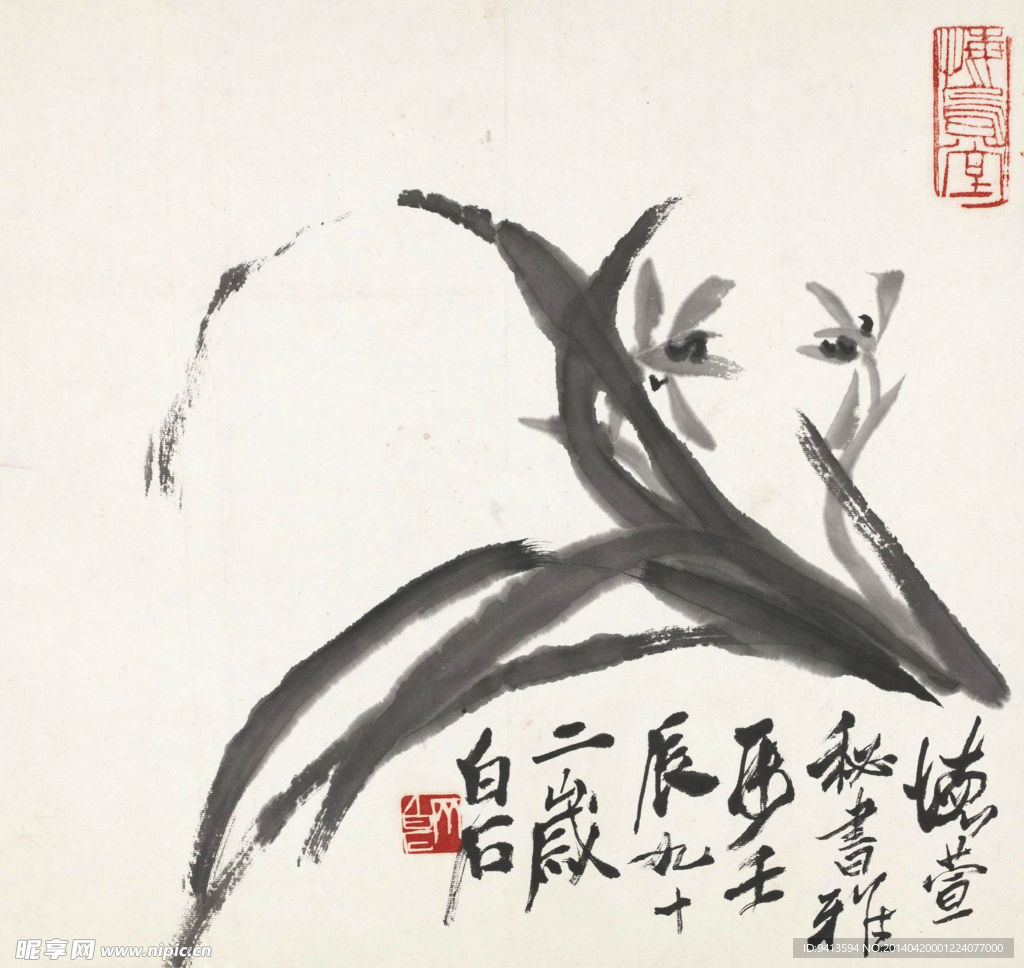 萱
秘書雅
屬壬
辰九十
二歲
白石
昵享网 www.nipic.cn
ID:9413594 NO:20140420001224077000